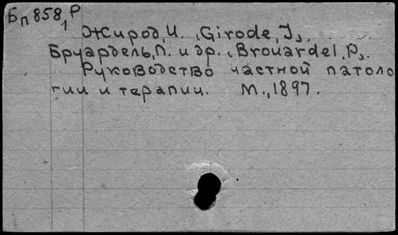 Бп 858, Р
1
Жирод, И. (Girode, J.).
Бруардель, П. и др. (Brouardel, P.).
Руководство частной патоло
гии и терапии. М., 1897.